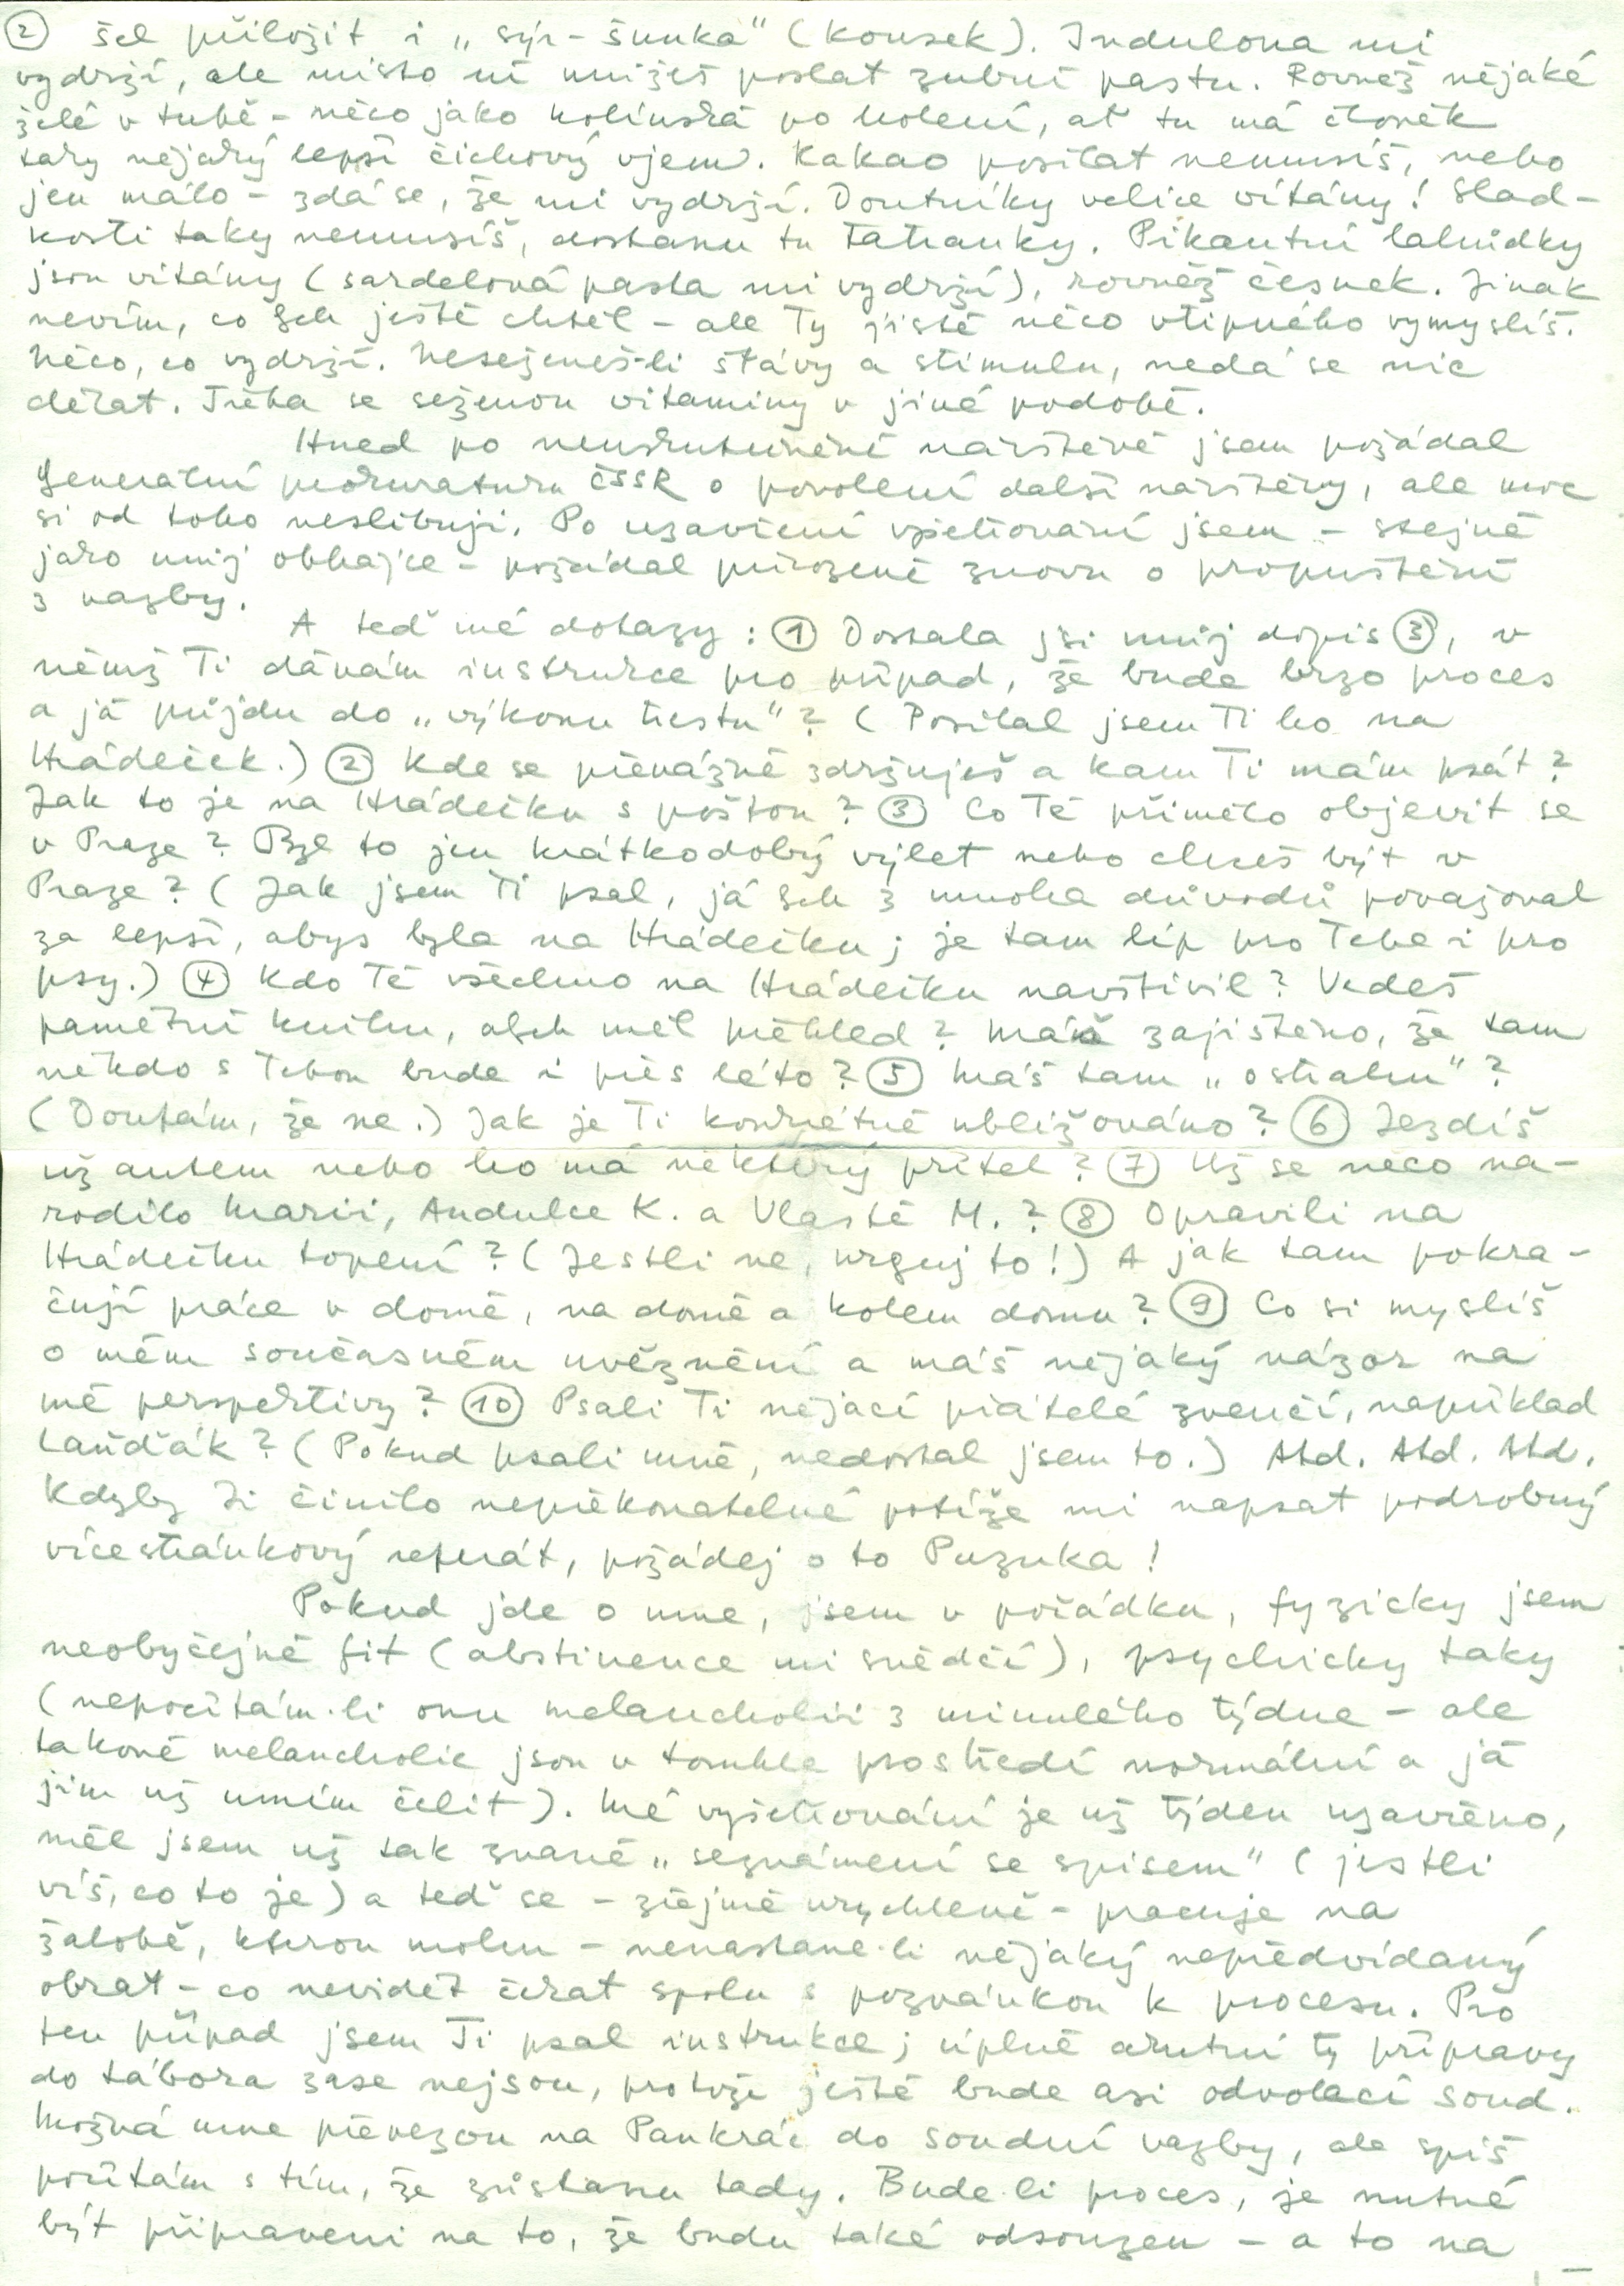 ② šel přiložit i „sýr-šunka" (kousek). Indulona mi
vydrží, ale místo ní můžeš poslat zubní pastu. Rovněž nějaké
želé v tubě - něco jako kolínská po holení, ať tu má člověk
taky nějaký lepší čichový vjem. Kakao posílat nemusíš, nebo
jen málo - zdá se, že mi vydrží. Doutníky velice vítány! Slad-
kosti taky nemusíš, dostanu tu Tatranky. Pikantní lahůdky
jsou vítány (sardelová pasta mi vydrží), rovněž česnek. Jinak
nevím, co bych ještě chtěl - ale Ty jistě něco vtipného vymyslíš.
Něco, co vydrží. Neseženeš-li šťávy a stimulu, nedá se nic
dělat. Třeba se seženou vitaminy v jiné podobě.
Hned po neuskutečněné návštěvě jsem požádal
Generální prokuraturu ČSSR o povolení další návštěvy, ale moc
si od toho neslibuji. Po uzavření vyšetřování jsem - stejně
jako můj obhájce - požádal přirozeně znovu o propuštění
z vazby.
A teď mé dotazy: ① Dostala jsi můj dopis ③, v
němž Ti dávám instrukce pro případ, že bude brzo proces
a já půjdu do „výkonu trestu"? (Posílal jsem Ti ho na
Hrádeček.) ② Kde se převážně zdržuješ a kam Ti mám psát?
Jak to je na Hrádečku s poštou? ③ Co Tě přimělo objevit se
v Praze? Byl to jen krátkodobý výlet nebo chceš být v
Praze? (Jak jsem Ti psal, já bych z mnoha důvodů považoval
za lepší, abys byla na Hrádečku; je tam líp pro Tebe i pro
psy.) ④ Kdo Tě všechno na Hrádečku navštívil? Vedeš
pamětní knihu, abych měl přehled? Máš zajištěno, že tam
někdo s Tebou bude i přes léto? ⑤ Máš tam „ostrahu"?
(Doufám, že ne.) Jak je Ti konkrétně ubližováno? ⑥ Jezdíš
už autem nebo ho má některý přítel? ⑦ Už se něco na-
rodilo Marii, Andulce K. a Vlastě M.? ⑧ Opravili na
Hrádečku topení? (Jestli ne, urguj to!) A jak tam pokra-
čují práce v domě, na domě a kolem domu? ⑨ Co si myslíš
o mém současném uvěznění a máš nějaký názor na
mé perspektivy? ⑩ Psali Ti nějací přátelé zvenčí, například
Landák? (Pokud psali mně, nedostal jsem to.) Atd. Atd. Atd.
Kdyby Ti činilo nepřekonatelné potíže mi napsat podrobný
vícestránkový referát, požádej o to Puzuka!
Pokud jde o mne, jsem v pořádku, fyzicky jsem
neobyčejně fit (abstinence mi svědčí), psychicky taky
(nepočítám-li onu melancholii z minulého týdne - ale
takové melancholie jsou v tomhle prostředí normální a já
jim už umím čelit). Mé vyšetřování je už týden uzavřeno,
měl jsem už tak zvané „seznámení se spisem" (jestli
víš, co to je) a teď se - zřejmě urychleně - pracuje na
žalobě, kterou mohu - nenastane-li nějaký nepředvídaný
obrat - co nevidět čekat spolu s pozvánkou k procesu. Pro
ten případ jsem Ti psal instrukce; úplně akutní ty přípravy
do tábora zase nejsou, protože ještě bude asi odvolací soud.
Možná mne převezou na Pankrác do soudní vazby, ale spíš
počítám s tím, že zůstanu tady. Bude-li proces, je nutné
být připraveni na to, že budu také odsouzen - a to na